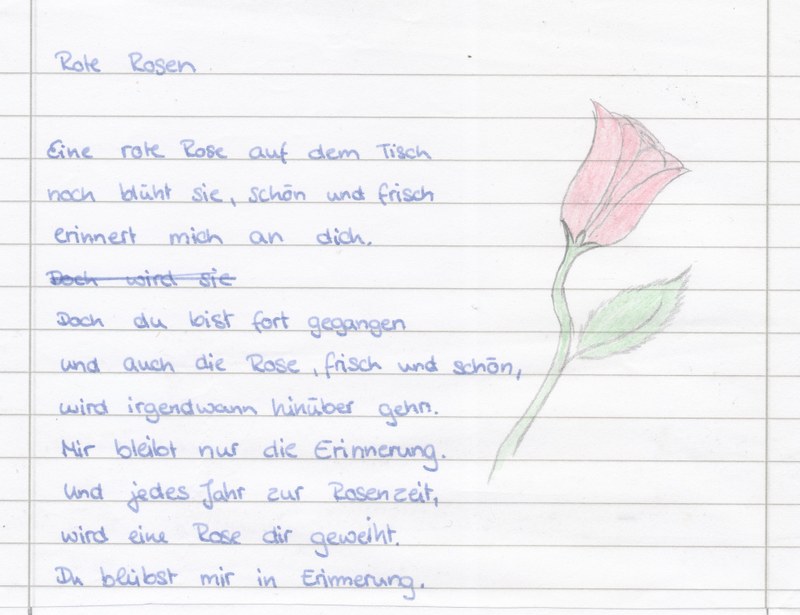 Rote Rosen
Eine rote Rose auf dem Tisch
noch blüht sie, schön und frisch
erinnert mich an dich.
Doch wird sie
Doch du bist fort gegangen
und auch die Rose, frisch und schön,
wird irgendwann hinüber gehn.
Mir bleibt nur die Erinnerung.
Und jedes Jahr zur Rosenzeit,
wird eine Rose dir geweiht.
Du bleibst mir in Erinnerung.